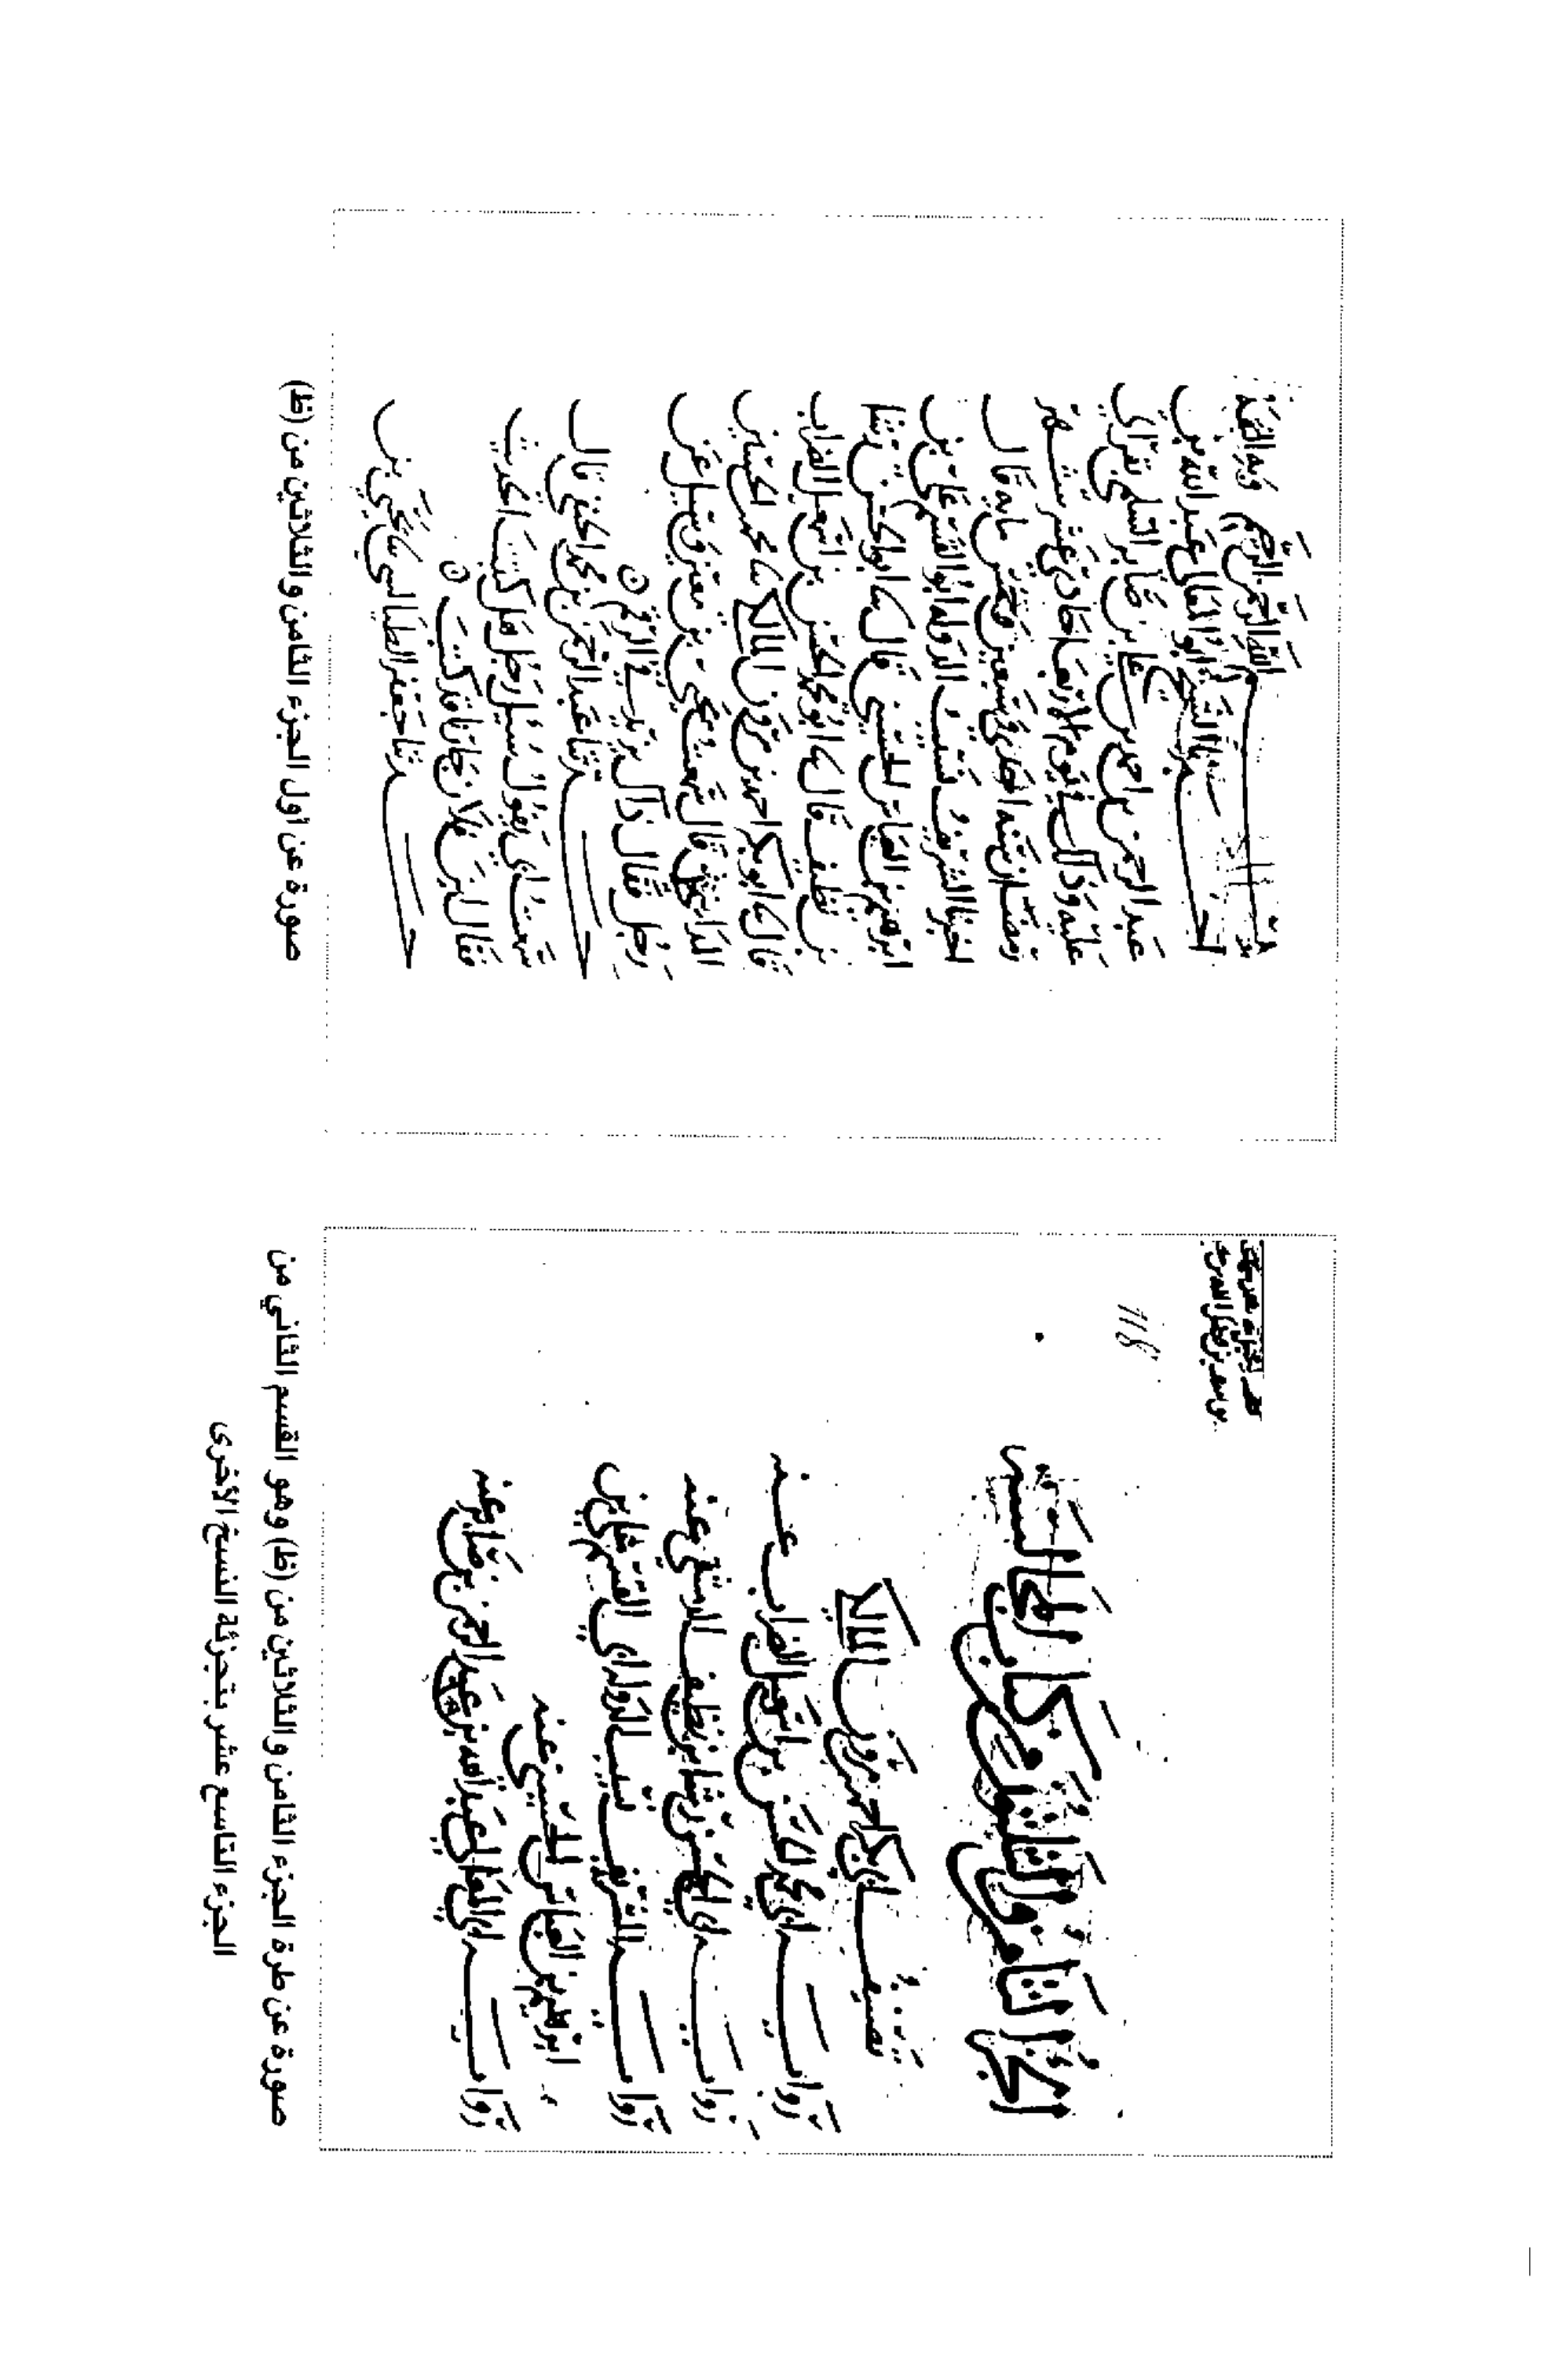 الجزء الثامن والثلثون من كتاب المجالسة
تصنيف ابي بكر احمد بن مروان المالكي
رواية ابي محمد الحسن بن اسمعيل الضراب عنه
رواية ابي الحسن رشا بن نظيف الدمشقي عنه
رواية الشريف نسيب الدولة ابي القسم علي بن
ابرهيم بن العباس الحسيني عنه
رواية ابي المعالي عبد الله بن عبد الرحمن بن صابر عنه
صورة عن طرة الجزء الثامن والثلاثين من (ظ) وهو القسم الثاني من
الجزء التاسع عشر بتجزئة النسخ الأخرى
بسم الله الرحمن الرحيم
اخبرنا الشيخ ابو المعالي عبد الله بن
عبد الرحمن بن احمد بن علي بن صابر السلمي بقراءتي
عليه وذلك في يوم الاربعا حادي عشر شهر
رمضان سنة احدى وسبعين وخمس مايه قال
اخبرنا الشريف نسيب الدولة ابو القسم علي بن
ابرهيم بن العباس الحسيني قال ثنا ابو الحسن رشا
بن نظيف قال ثنا ابو محمد الحسن بن اسمعيل الضراب
قال ثنا ابو بكر احمد بن مروان المالكي ثنا محمد بن
قال سمعت يحيى بن معين وسئل عن
رجل فقال ذاك يزيد في الرقم
حدثنا عبد الرحمن بن محمد الحنفي قال
سمعت ابي يقول سئل رجل هل كتبت الحديث
حدثنا جعفر الطيالسي ثنا يحيى بن
صورة عن أول الجزء الثامن والثلاثين من (ظ)